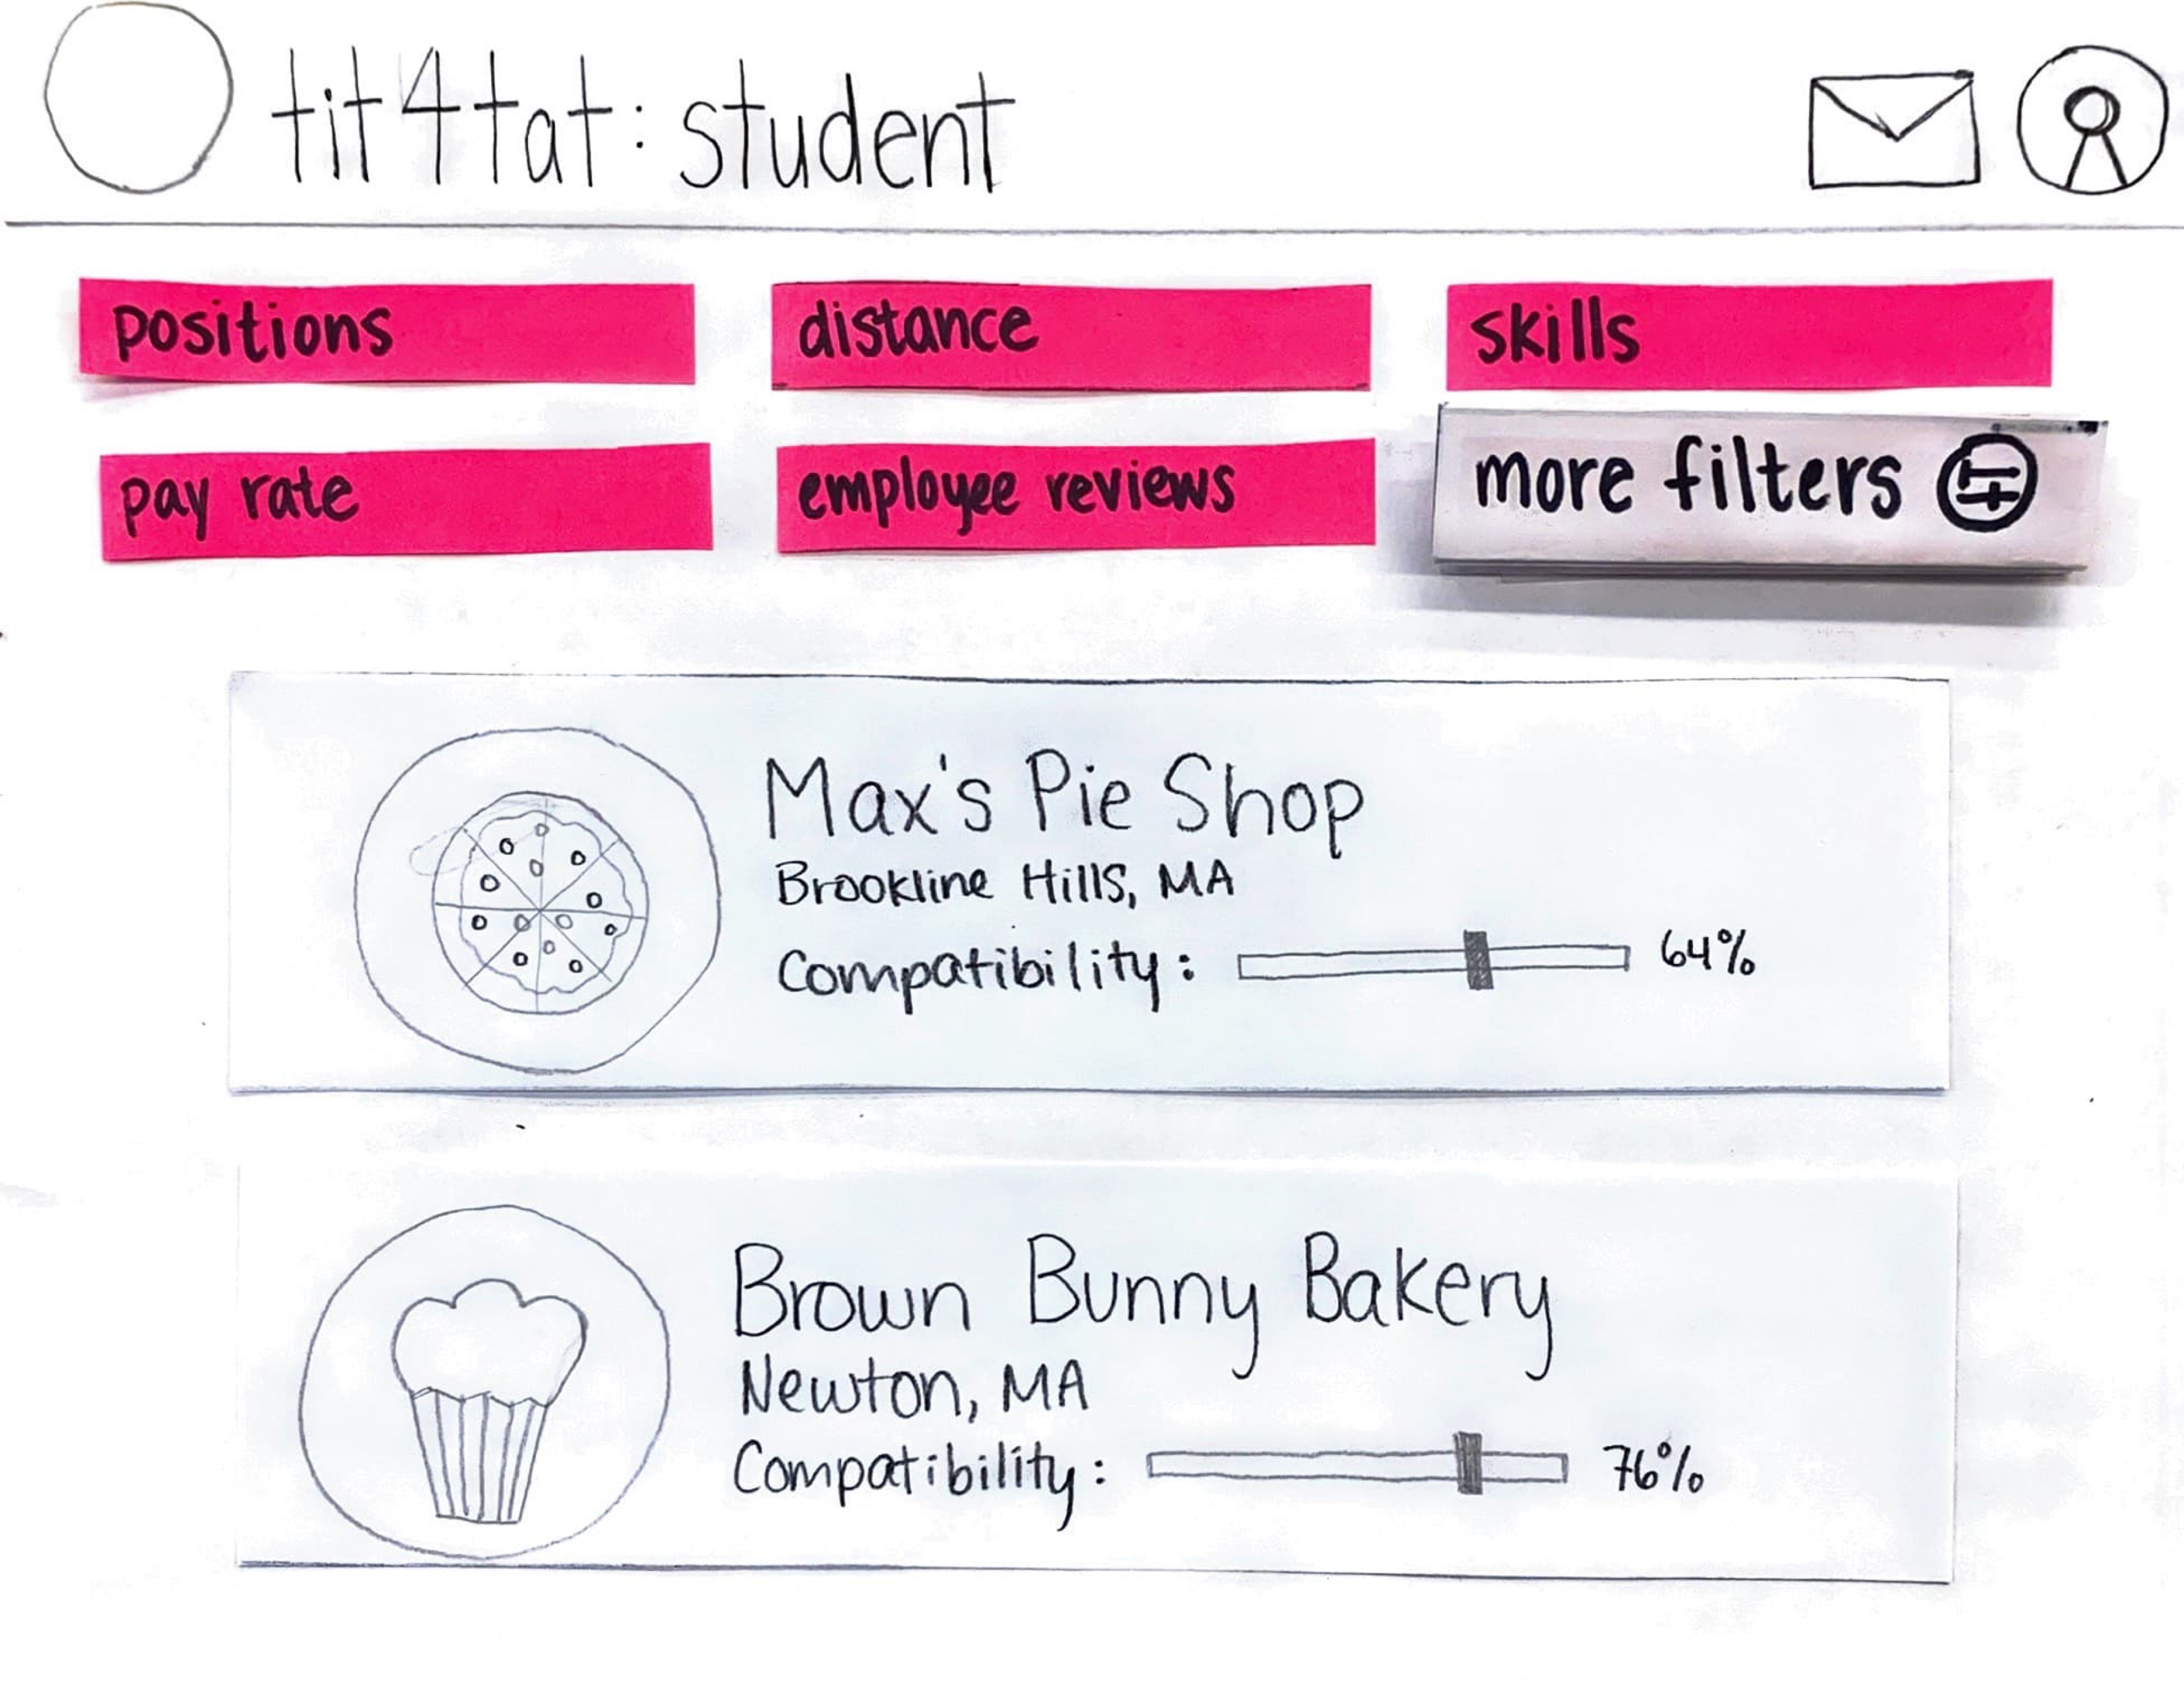 tit4tat: student
positions
distance
skills
pay rate
employee reviews
more filters
Max's Pie Shop
Brookline Hills, MA
Compatibility: 64%
Brown Bunny Bakery
Newton, MA
Compatibility: 76%